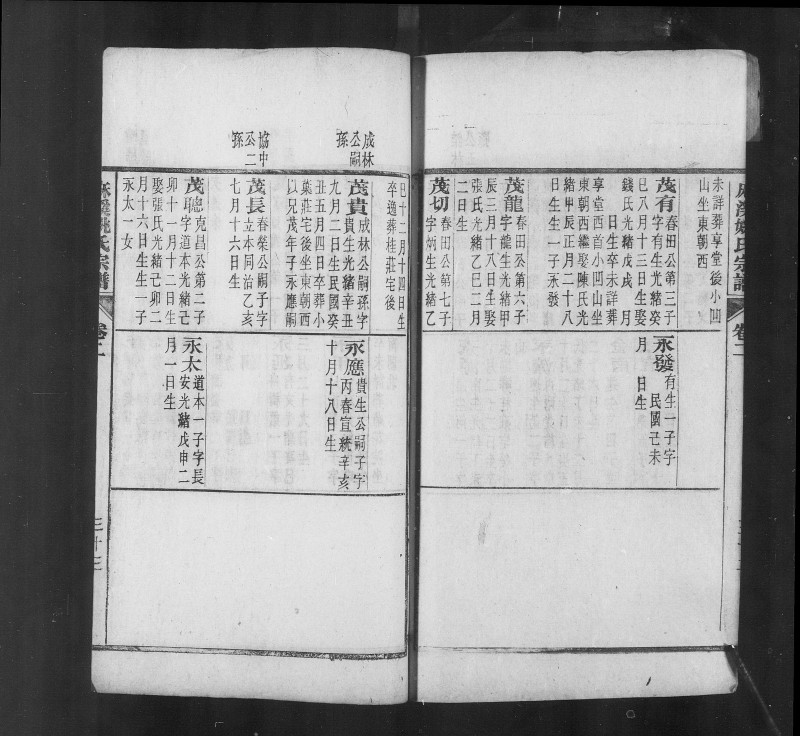 未詳葬享堂後小凹
山坐東朝西
茂有春田公第三子
字有生光緒癸
巳八月十三日生娶
錢氏光緒戊戌　月
日生卒未詳葬
享堂西首小凹山坐
東朝西繼娶陳氏光
緒甲辰正月二十八
日生生一子永發
茂龍春田公第六子
字龍生光緒甲
辰三月十八日生娶
張氏光緒乙巳二月
二日生
茂切春田公第七子
字炳生光緒乙
永發有生一子字
民國己未
月　日生
卷二
成林
公嗣
孫
協中
公二
孫
巳十二月十四日生
卒適葬桂莊宅後
茂貴成林公嗣孫字
貴生光緒辛丑
九月二日生民國癸
丑五月四日卒葬小
葉莊宅後坐東朝西
以兄茂年子永應嗣
茂長春榮公嗣子字
立本同治乙亥
七月十六日生
茂聰克昌公第二子
字道本光緒己
卯十一月十二日生
娶張氏光緒己卯二
月十六日生生一子
永太一女
永應貴生公嗣子字
丙春宣統辛亥
十月十八日生
永太道本一子字長
安光緒戊申二
月一日生
氏宗譜
卷二
三十三